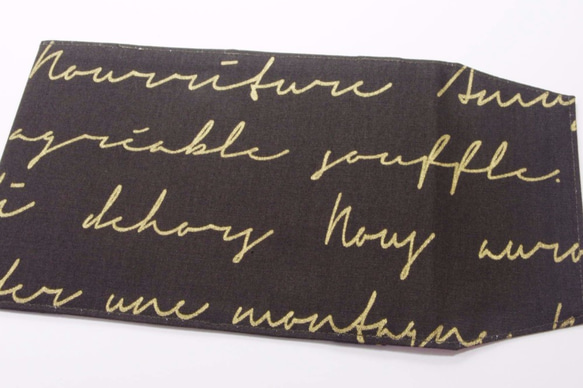 Nourriture
agréable souffle.
dehors Nous
une montagne